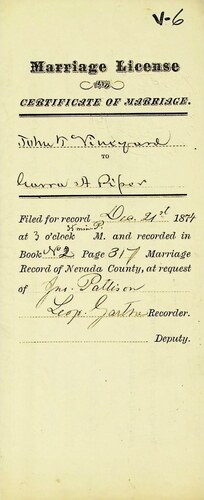 V-6
Marriage License
AND
CERTIFICATE OF MARRIAGE.
John T. Vineyard
TO
Laura A Piper
Filed for record Dec. 21st 1874
at 3 o'clock 35 min P. M. and recorded in
Book No 2 Page 317 Marriage
Record of Nevada County, at request
of Jno. Pattison
Leop. Garthe Recorder.
Deputy.